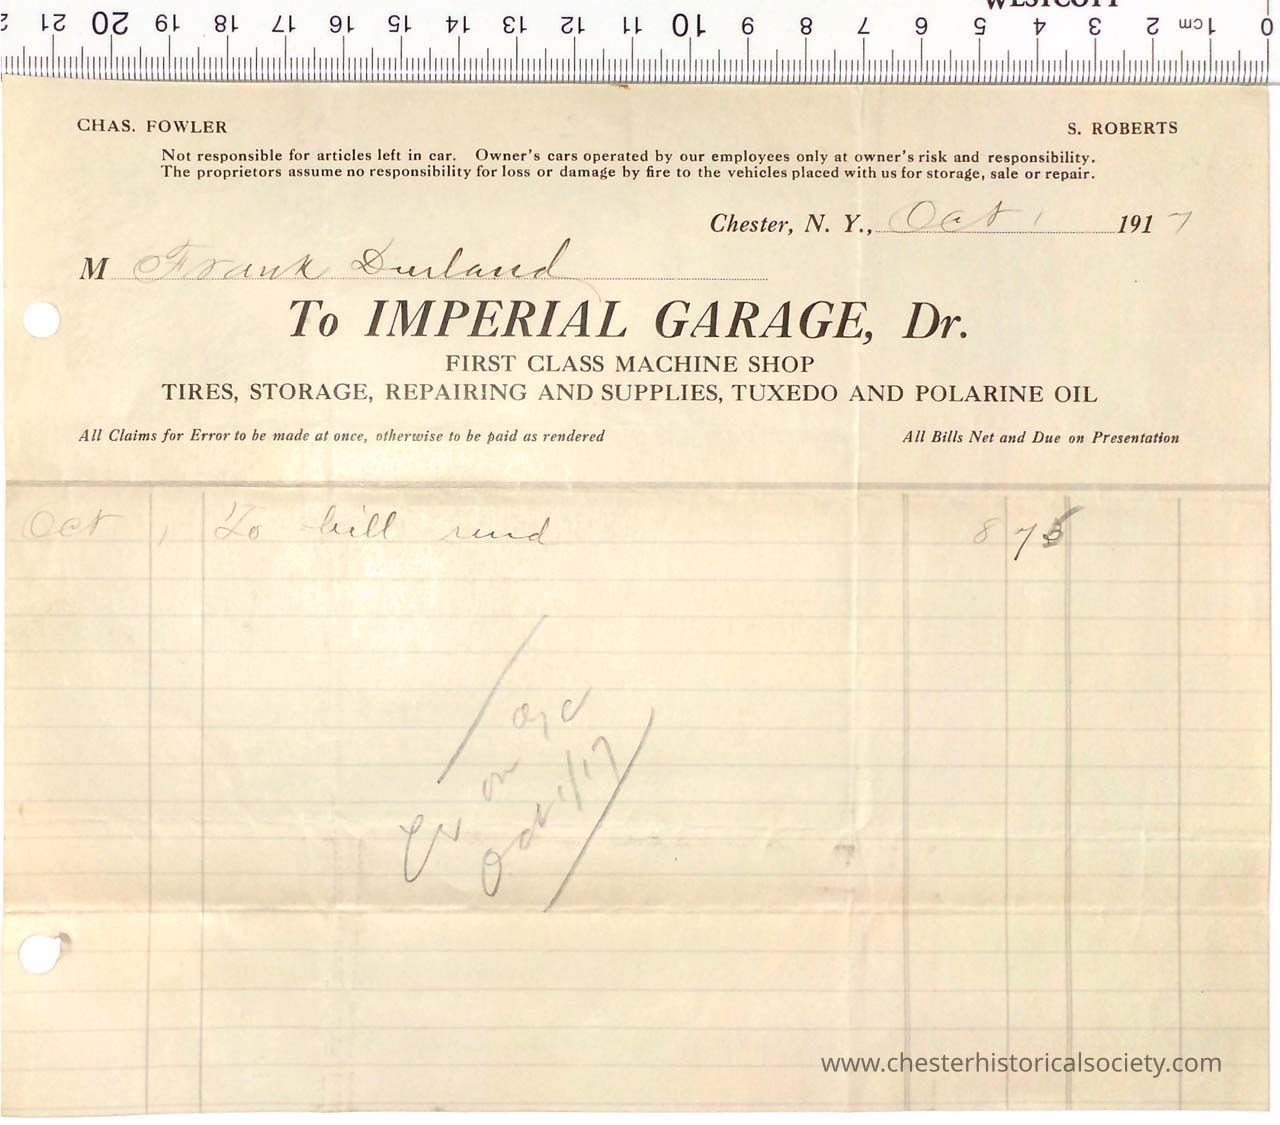 WESTCOTT
21 20 19 18 17 16 15 14 13 12 11 10 9 8 7 6 5 4 3 2 1cm 0
CHAS. FOWLER S. ROBERTS
Not responsible for articles left in car. Owner's cars operated by our employees only at owner's risk and responsibility.
The proprietors assume no responsibility for loss or damage by fire to the vehicles placed with us for storage, sale or repair.
Chester, N. Y., Oct 1 1917
M Frank Durland
To IMPERIAL GARAGE, Dr.
FIRST CLASS MACHINE SHOP
TIRES, STORAGE, REPAIRING AND SUPPLIES, TUXEDO AND POLARINE OIL
All Claims for Error to be made at once, otherwise to be paid as rendered All Bills Net and Due on Presentation
Oct 1 To bill rend 8 75
Cr on a/c
Oct 1/17
www.chesterhistoricalsociety.com